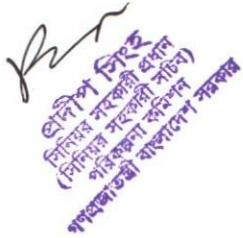 প্রদীপ সিংহ
সিনিয়র সহকারী প্রধান
(সিনিয়র সহকারী সচিব)
পরিকল্পনা কমিশন
গণপ্রজাতন্ত্রী বাংলাদেশ সরকার